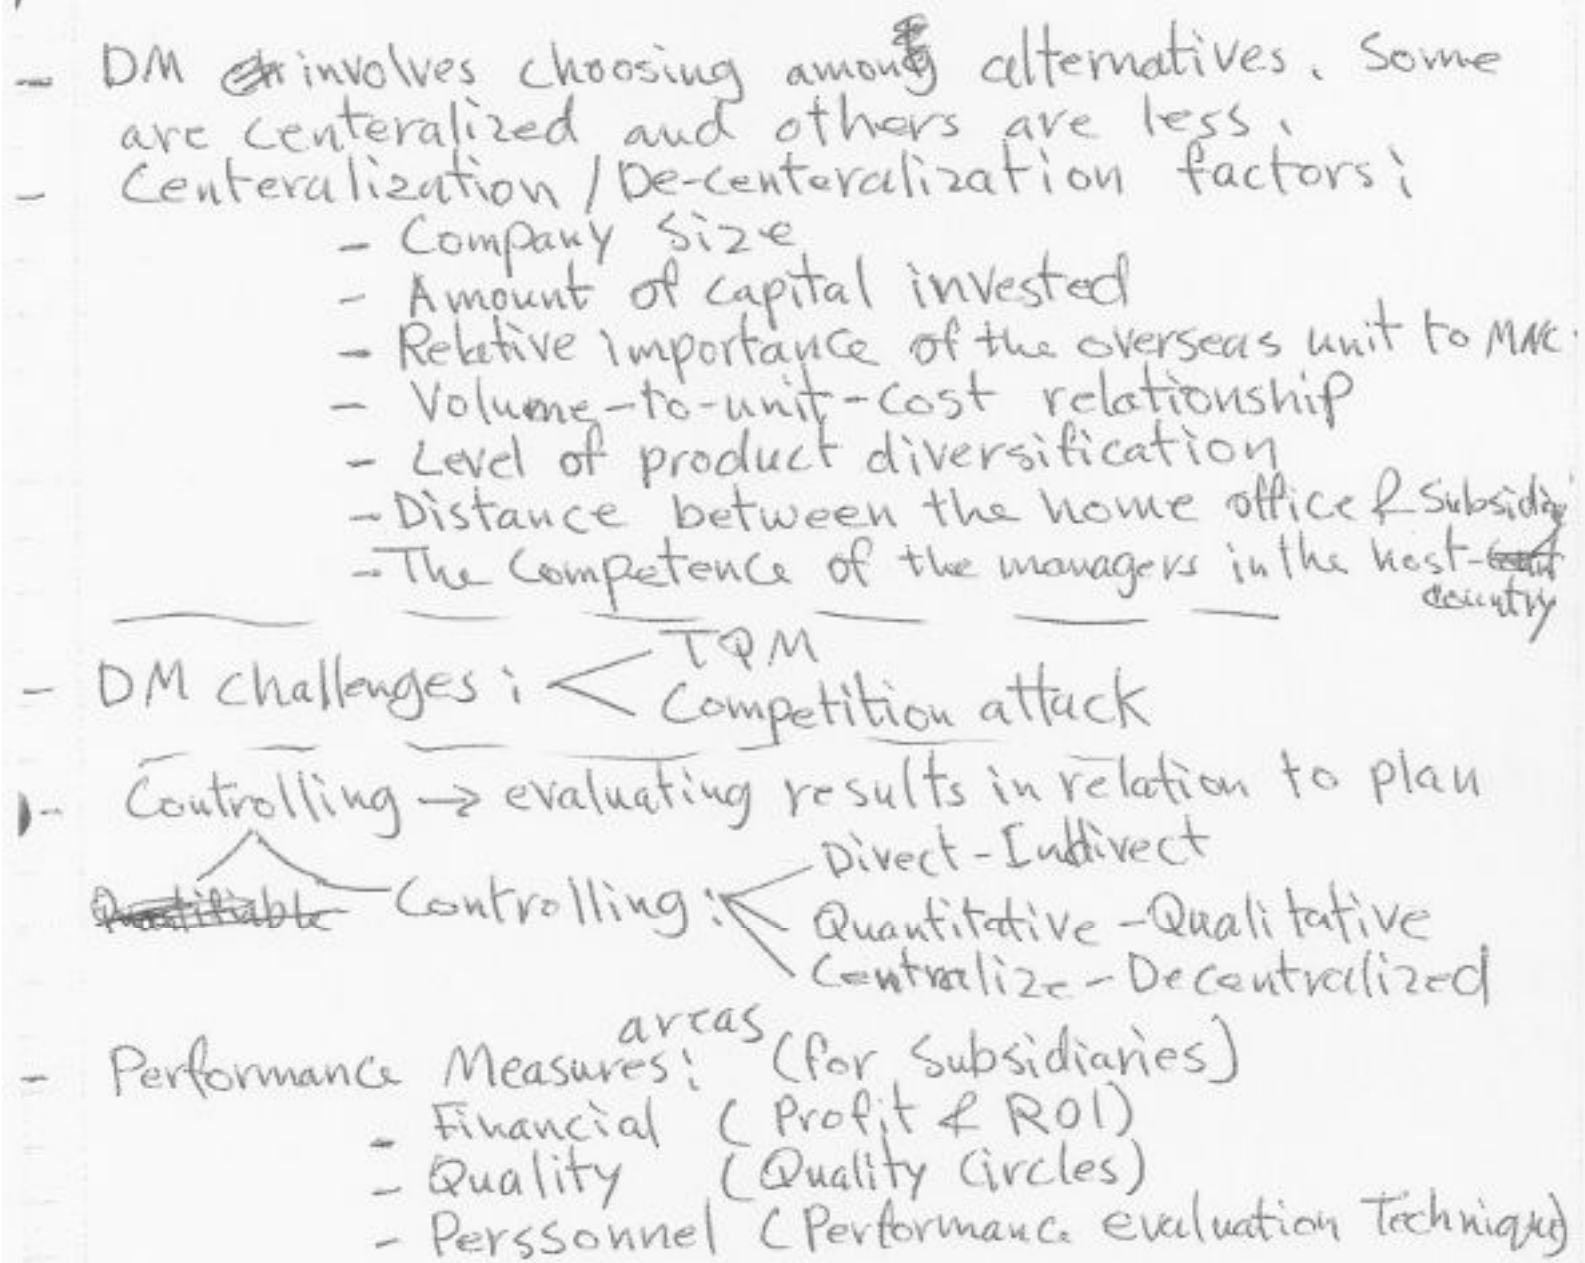 - DM involves choosing among alternatives. Some
are centeralized and others are less.
- Centeralization / De-centeralization factors:
- Company size
- Amount of capital invested
- Relative importance of the overseas unit to MNC.
- Volume-to-unit-cost relationship
- Level of product diversification
- Distance between the home office & Subsidiary
- The Competence of the managers in the host-
country
- DM challenges: < TQM
Competition attack
- Controlling → evaluating results in relation to plan
Direct - Indirect
Controlling:
Quantitative - Qualitative
Centralize - Decentralized
areas
- Performance Measures: (for Subsidiaries)
- Financial (Profit & ROI)
- Quality (Quality Circles)
- Perssonnel (Performance evaluation Technique)